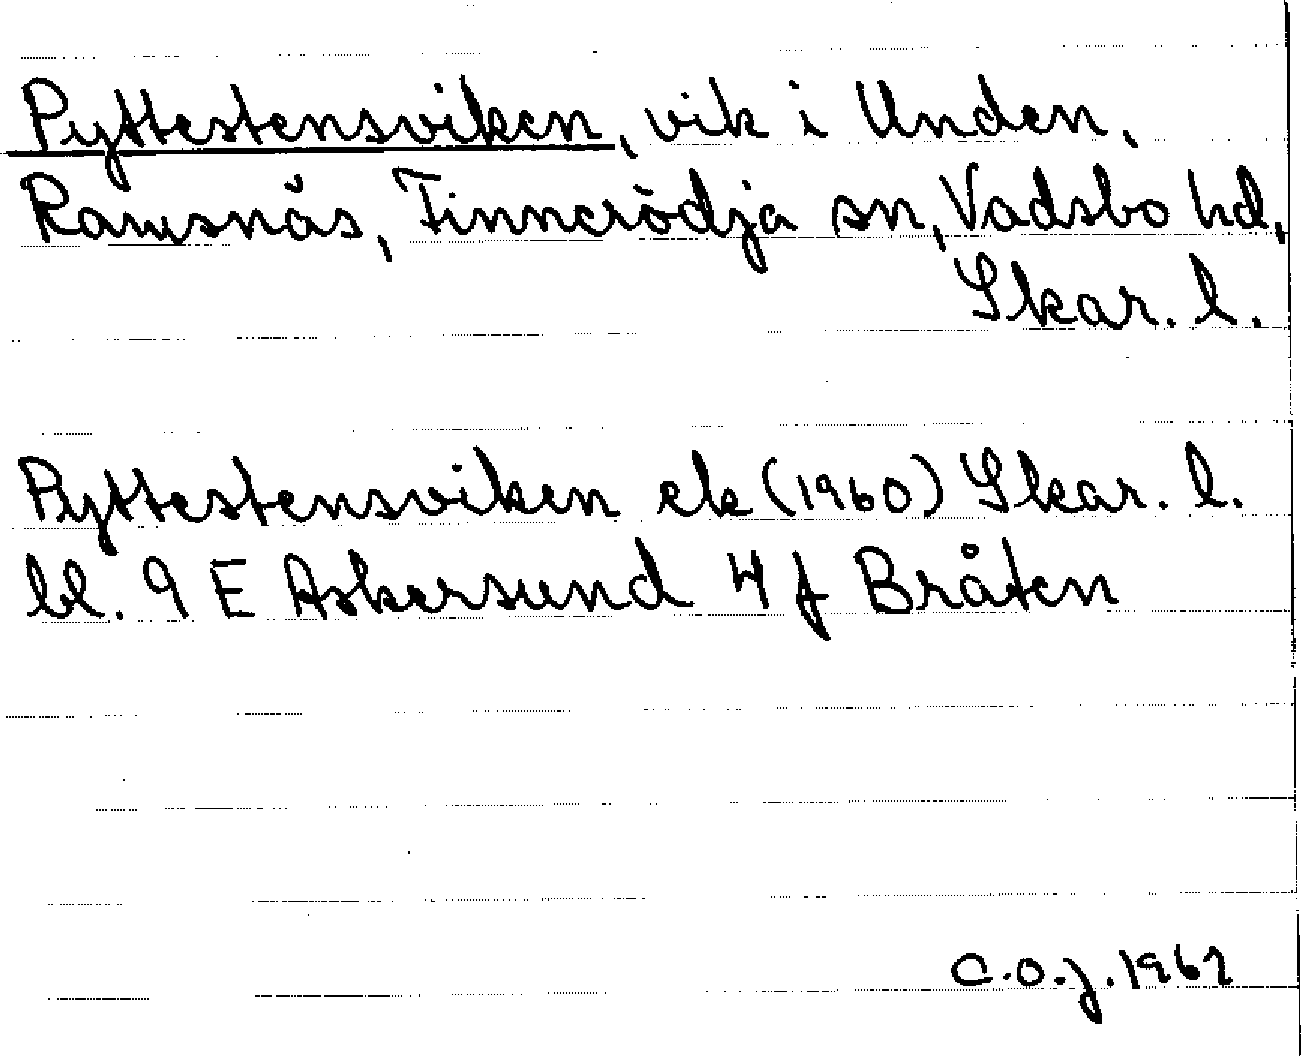 Pyttestensviken, vik i Unden,
Ramsnäs, Finnerödja sn, Vadsbo hd,
Skar. l.
Pyttestensviken ek (1960) Skar. l.
bl. 9 E Askersund 4 f Bråten
C.O.J. 1962